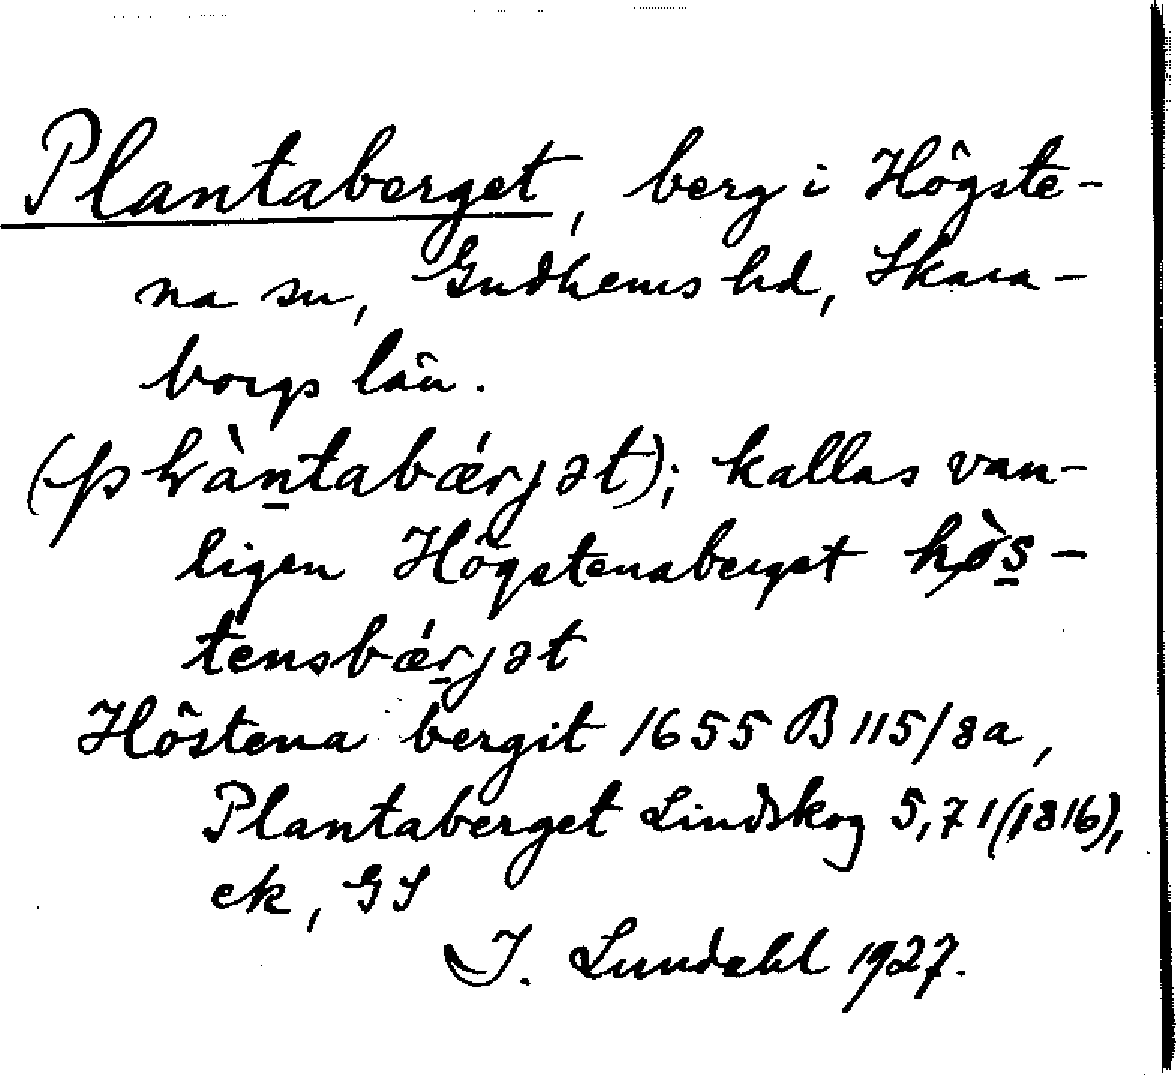 Plantaberget, berg i Högste-
na sn, Gudhems hd, Skara-
borgs län.
(pḷàn̲tabǽrjət); kallas van-
ligen Högstenaberget hø̀s̲-
tensbǽr̲jət
Höstena bergit 1655 B 115/8a,
Plantaberget Lindskog 5,71 (1816),
ek, GS
I. Lundahl 1927.